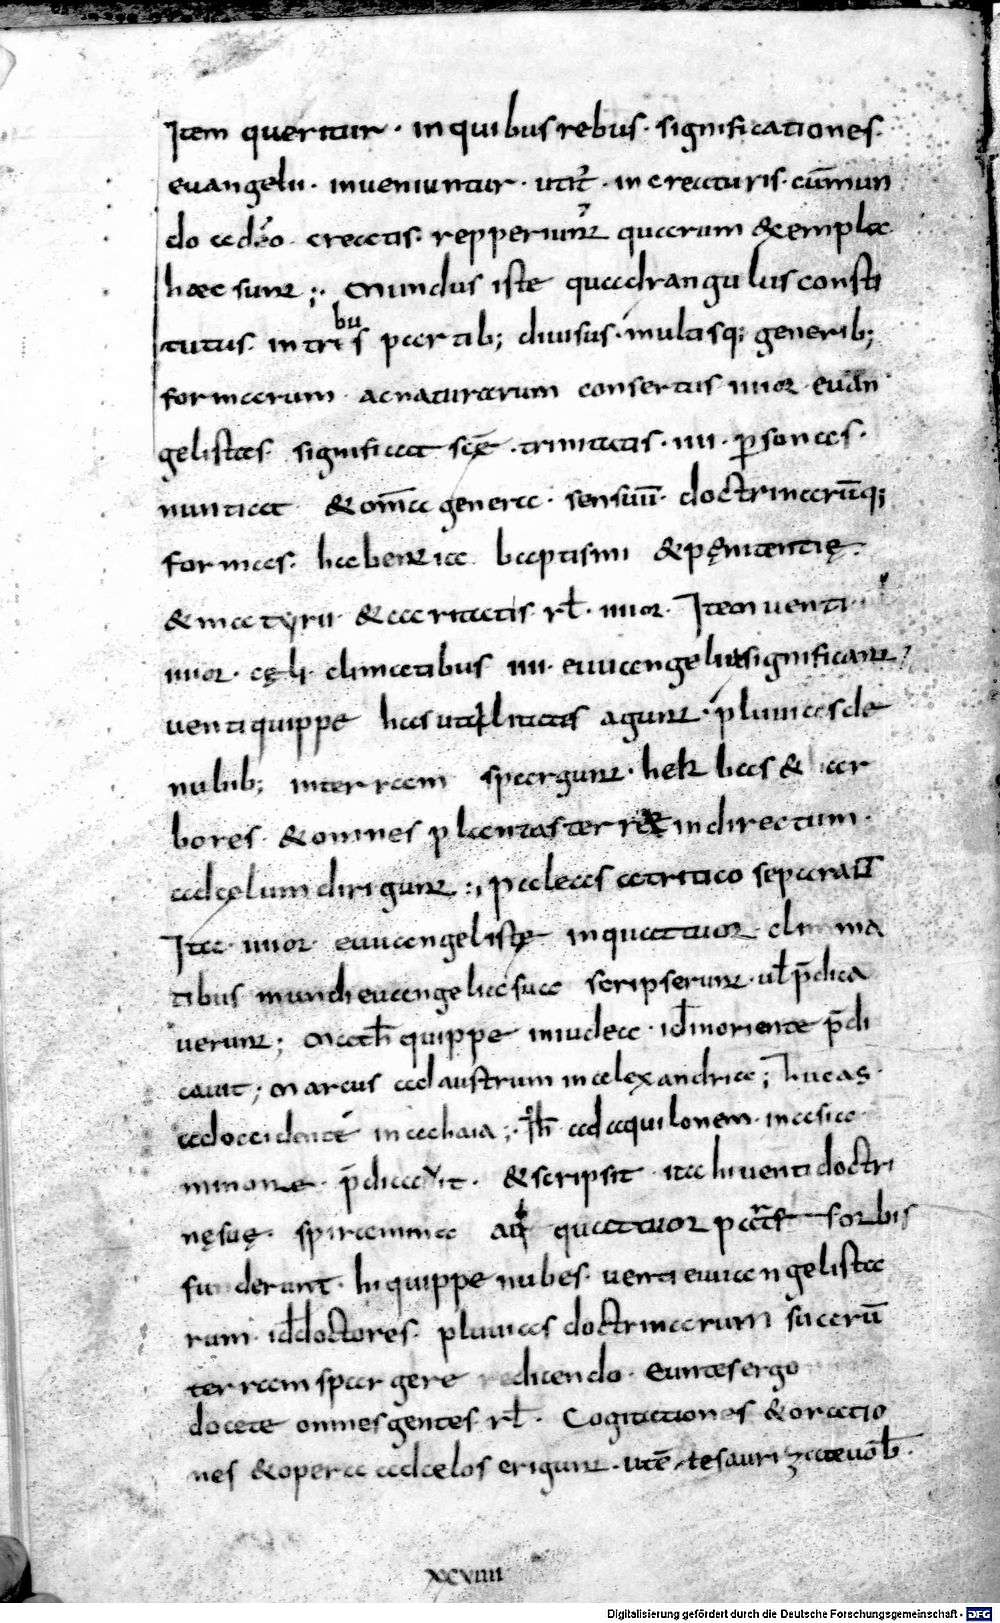 Item queritur · in quibus rebus · significationes ·
euangelii · inueniuntur · utit̃ · in creaturis · cū mun
do a dō creatis · repperiunt̃ quarum & exempla
haec sunt ;· Mundus iste quadrangulus consti
tutus · in tribus partib; diuisus · multisq; generib;
formarum · ac naturarum consertus iiiior · euan
gelistas · significat scę̄ · trinitatis · iii · ꝑsonas ·
nuntiat & om̄a genera · sensuū · doctrinarūq;
formas · habent ia baptismi & pęnitentię ·
& matyrii · & caritatis · rł · iiiior · Item uenti
iiiior · cęli climatibus iiii · euuangelii significant
uenti quippe has utilitatis agunt · pluuias de
nubib; in terram spargunt · herbas & ar
bores · & omnes plantas terrae in directum ·
ad cęlum dirigunt :, paleas a tritico separant̄
Ita · iiiior · euuangelistę in quattuor clima
tibus mundi euangelia sua scripserunt · uł p̄dica
uerunt ; Math quippe in iudea · id in oriente p̄di
cauit ; Marcus ad austrum in alexandria ; Lucas ·
ad occidentē in achaia ;· Ioh̄ ad aquilonem · in asia
minore · p̄dicauit · & scripsit · ita hi uenti doctri
nę suę · spiramina quattuor orbis
funderunt · hi quippe nubes · uenti euuangelista
rum · id doctores · pluuias doctrinarum suarū
terram spargere dicendo · Euntes ergo
docete omnes gentes rł · Cogitationes & oratio
nes & opera ad celos erigunt · ut ē · tesaurizate uob̄ ·
xcviiii
Digitalisierung gefördert durch die Deutsche Forschungsgemeinschaft - DFG